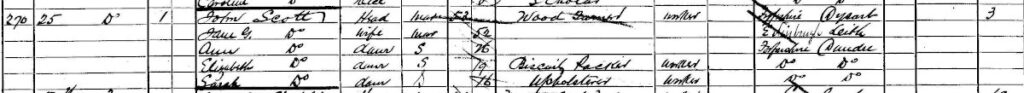 Caroline Do Scholar
270 25 Do 1 John Scott Head Mar 53 Wood Turner worker Forfarshire Dysart 3
Jane G. Do Wife Mar 52 Edinburgh Leith
Ann Do daur S 26 Forfarshire Dundee
Elizabeth Do daur S 19 Biscuit Packer worker Do Do
Sarah Do daur S 16 Upholsterer worker Do Do